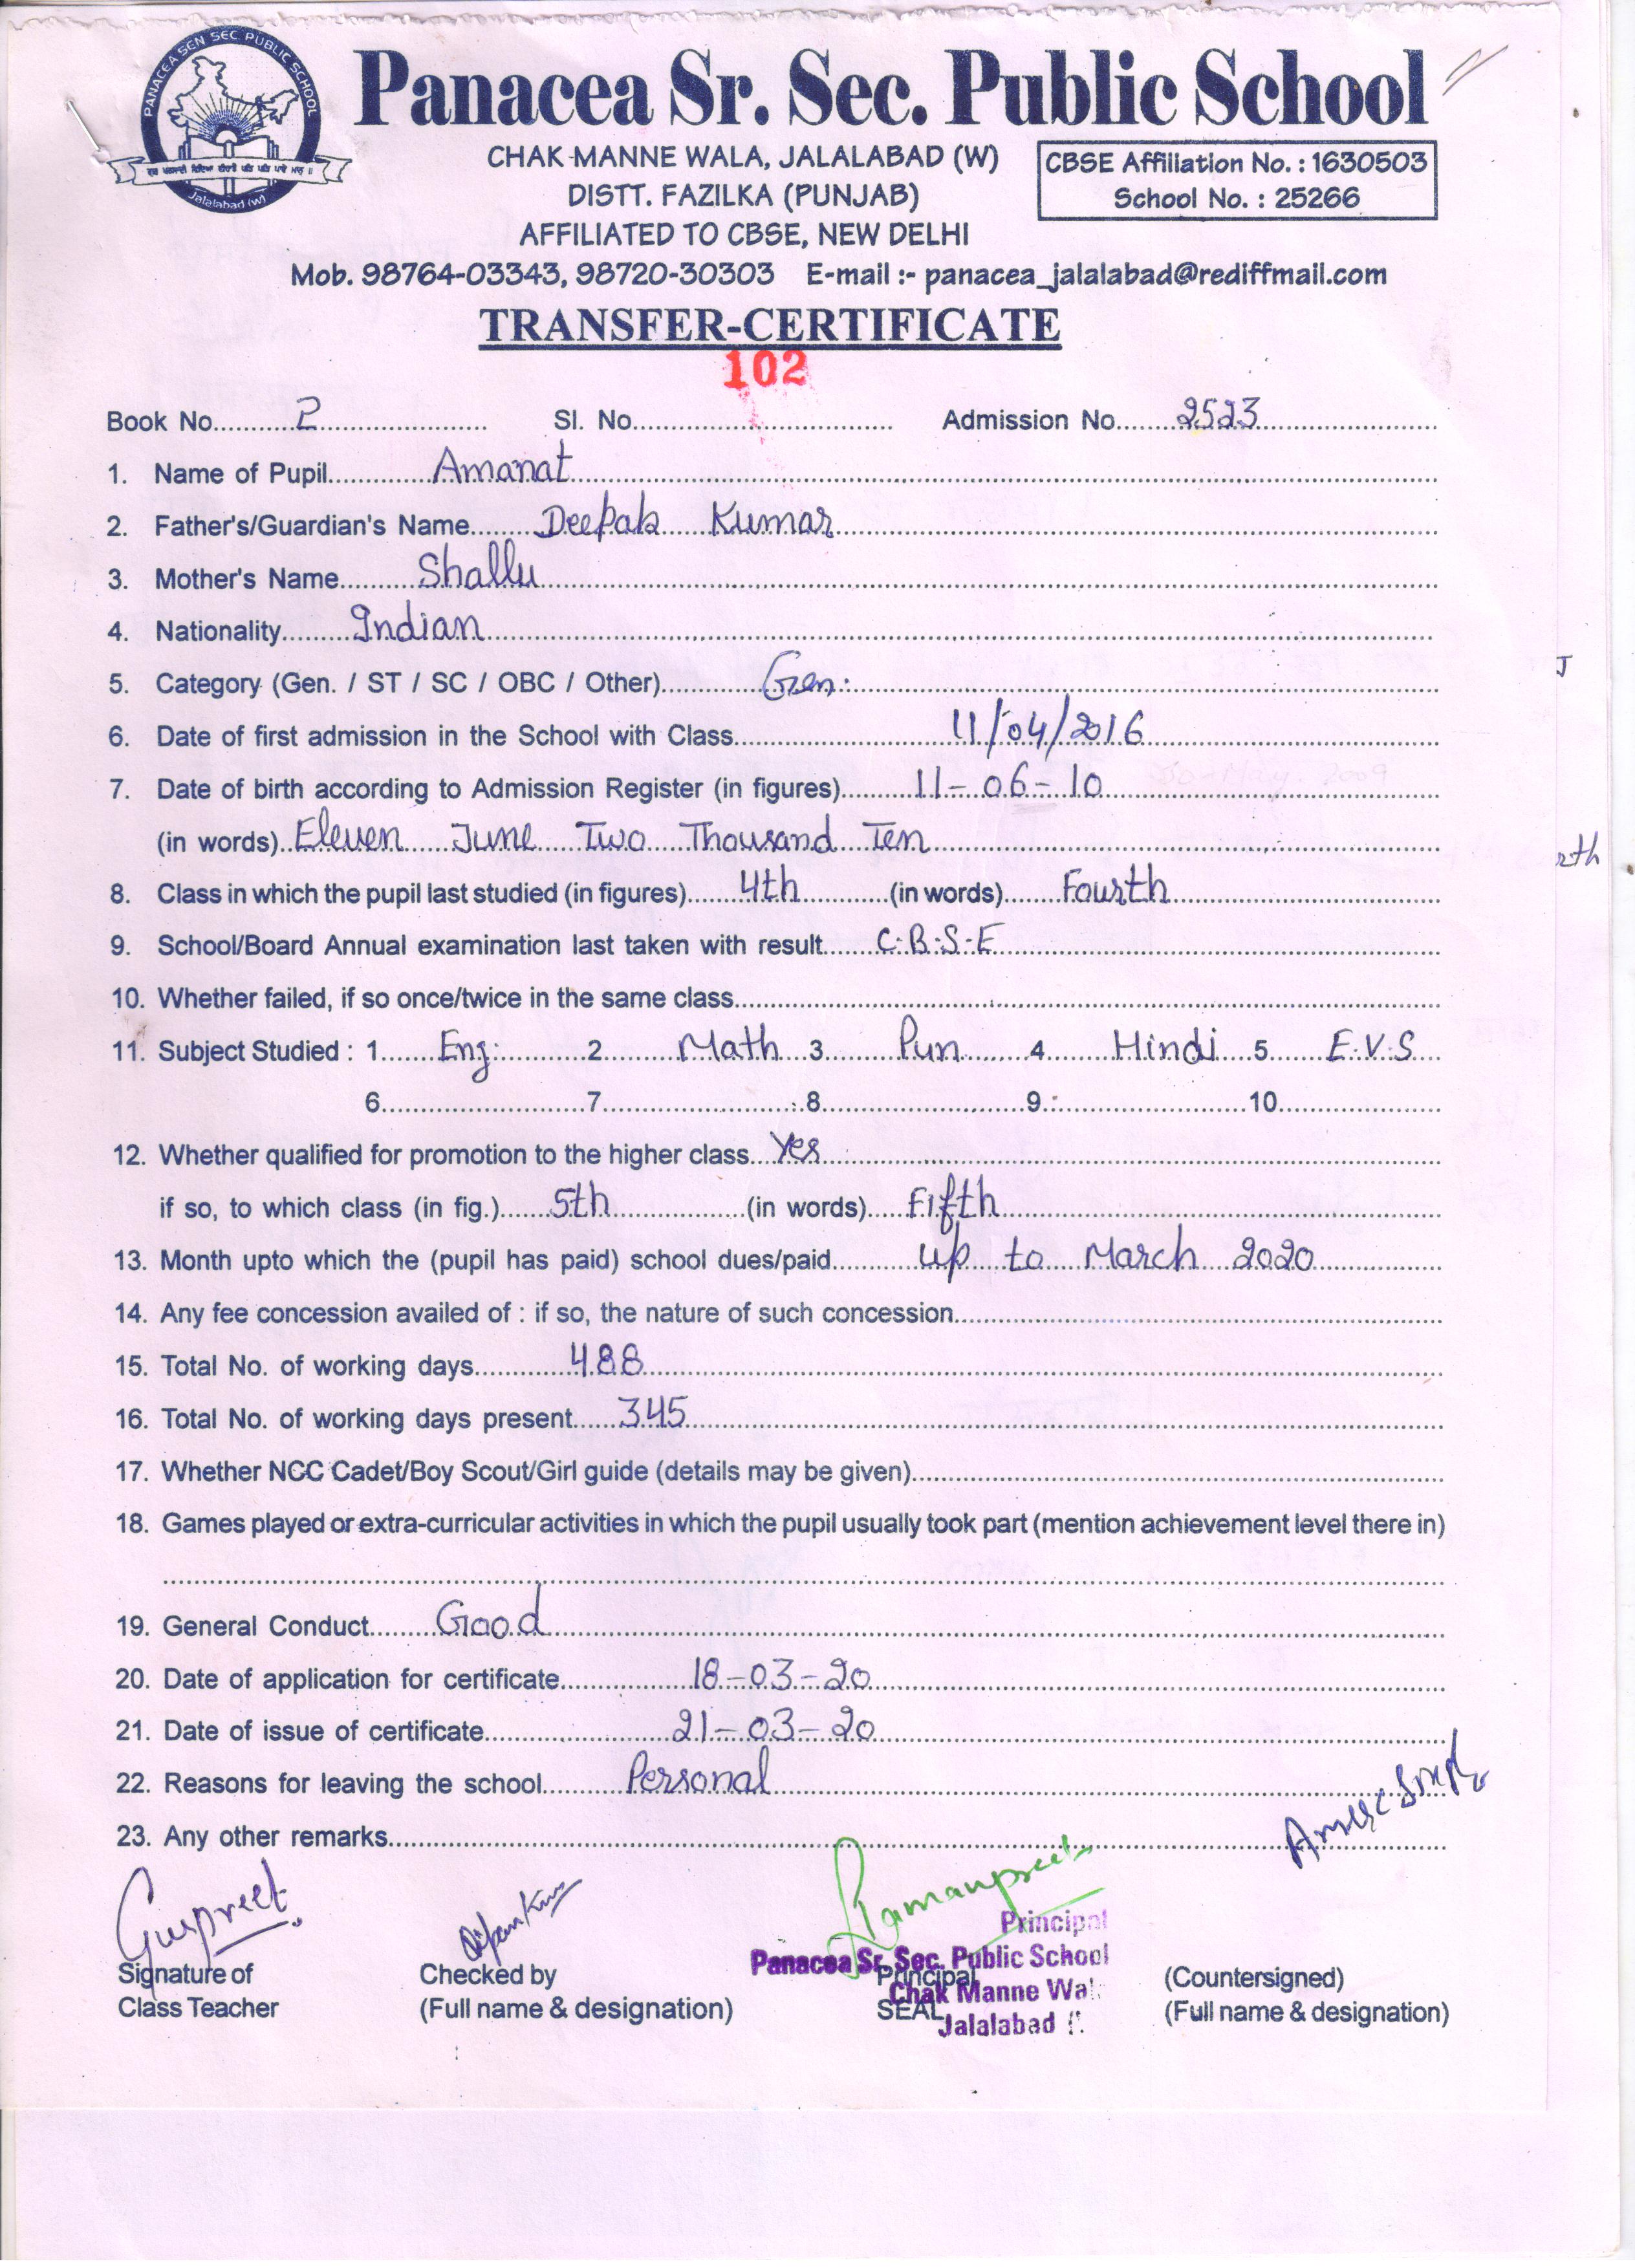 PANACEA SEN SEC. PUBLIC SCHOOL
Jalalabad (W)
Panacea Sr. Sec. Public School
CHAK MANNE WALA, JALALABAD (W)
DISTT. FAZILKA (PUNJAB)
AFFILIATED TO CBSE, NEW DELHI
CBSE Affiliation No. : 1630503
School No. : 25266
Mob. 98764-03343, 98720-30303 E-mail :- panacea_jalalabad@rediffmail.com
TRANSFER-CERTIFICATE
102
Book No. 2 Sl. No. Admission No. 2523
1. Name of Pupil Amanat
2. Father's/Guardian's Name Deepak Kumar
3. Mother's Name Shallu
4. Nationality Indian
5. Category (Gen. / ST / SC / OBC / Other) Gen.
6. Date of first admission in the School with Class 11/04/2016
7. Date of birth according to Admission Register (in figures) 11-06-10
(in words) Eleven June Two Thousand Ten
8. Class in which the pupil last studied (in figures) 4th (in words) Fourth
9. School/Board Annual examination last taken with result C.B.S.E
10. Whether failed, if so once/twice in the same class
11. Subject Studied : 1 Eng. 2 Math 3 Pun 4 Hindi 5 E.V.S
6 7 8 9 10
12. Whether qualified for promotion to the higher class Yes
if so, to which class (in fig.) 5th (in words) Fifth
13. Month upto which the (pupil has paid) school dues/paid up to March 2020
14. Any fee concession availed of : if so, the nature of such concession
15. Total No. of working days 488
16. Total No. of working days present 345
17. Whether NCC Cadet/Boy Scout/Girl guide (details may be given)
18. Games played or extra-curricular activities in which the pupil usually took part (mention achievement level there in)
19. General Conduct Good
20. Date of application for certificate 18-03-20
21. Date of issue of certificate 21-03-20
22. Reasons for leaving the school Personal
23. Any other remarks
Gurpreet
Ramanpreet
Principal
Panacea Sr. Sec. Public School
Chak Manne Wal
Jalalabad (
Signature of
Class Teacher
Checked by
(Full name & designation)
Principal
SEAL
(Countersigned)
(Full name & designation)